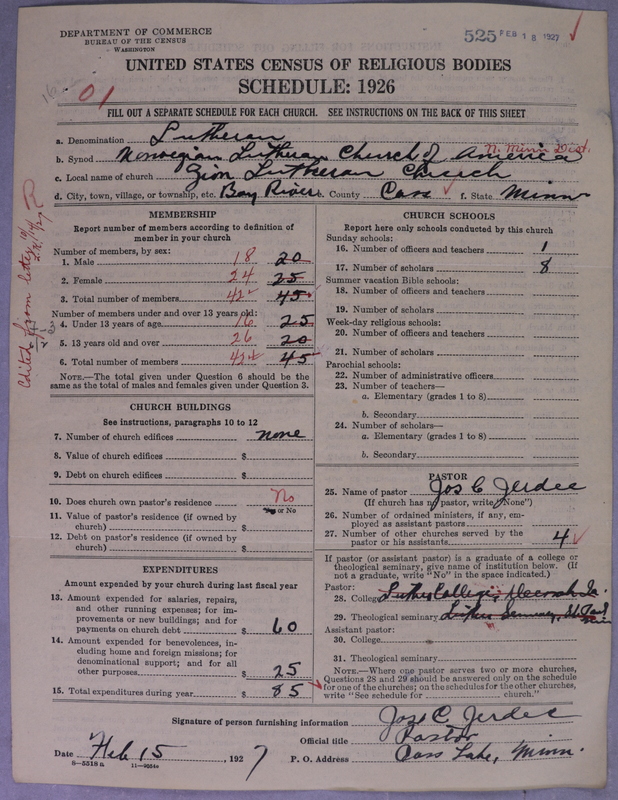 DEPARTMENT OF COMMERCE
BUREAU OF THE CENSUS
WASHINGTON
525 FEB 18 1927
UNITED STATES CENSUS OF RELIGIOUS BODIES
SCHEDULE: 1926
01
FILL OUT A SEPARATE SCHEDULE FOR EACH CHURCH. SEE INSTRUCTIONS ON THE BACK OF THIS SHEET
a. Denomination Lutheran
N. Minn Dist.
b. Synod Norwegian Lutheran Church of America
c. Local name of church Zion Lutheran Church
d. City, town, village, or township, etc. Boy River e. County Cass f. State Minn
MEMBERSHIP
Report number of members according to definition of
member in your church
Number of members, by sex:
1. Male 18 20
2. Female 24 25
3. Total number of members 42 45
Number of members under and over 13 years old:
4. Under 13 years of age 16 25
5. 13 years old and over 26 20
6. Total number of members 42 45
NOTE.—The total given under Question 6 should be the
same as the total of males and females given under Question 3.
Edited from letter
CHURCH BUILDINGS
See instructions, paragraphs 10 to 12
7. Number of church edifices none
8. Value of church edifices $
9. Debt on church edifices $
10. Does church own pastor's residence No
Yes or No
11. Value of pastor's residence (if owned by
church) $
12. Debt on pastor's residence (if owned by
church) $
EXPENDITURES
Amount expended by your church during last fiscal year
13. Amount expended for salaries, repairs,
and other running expenses; for im-
provements or new buildings; and for
payments on church debt $ 60
14. Amount expended for benevolences, in-
cluding home and foreign missions; for
denominational support; and for all
other purposes $ 25
15. Total expenditures during year $ 85
CHURCH SCHOOLS
Report here only schools conducted by this church
Sunday schools:
16. Number of officers and teachers 1
17. Number of scholars 8
Summer vacation Bible schools:
18. Number of officers and teachers
19. Number of scholars
Week-day religious schools:
20. Number of officers and teachers
21. Number of scholars
Parochial schools:
22. Number of administrative officers
23. Number of teachers—
a. Elementary (grades 1 to 8)
b. Secondary
24. Number of scholars—
a. Elementary (grades 1 to 8)
b. Secondary
PASTOR
25. Name of pastor Jos C Jerdee
(If church has no pastor, write "None")
26. Number of ordained ministers, if any, em-
ployed as assistant pastors
27. Number of other churches served by the
pastor or his assistants 4
If pastor (or assistant pastor) is a graduate of a college or
theological seminary, give name of institution below. (If
not a graduate, write "No" in the space indicated.)
Pastor:
28. College Luther College, Decorah Ia.
29. Theological seminary Luther Seminary, St. Paul
Assistant pastor:
30. College
31. Theological seminary
NOTE.—Where one pastor serves two or more churches,
Questions 28 and 29 should be answered only on the schedule
for one of the churches; on the schedules for the other churches,
write "See schedule for church."
Signature of person furnishing information Jos. C. Jerdee
Official title Pastor
Date Feb 15, 1927 P. O. Address Cass Lake, Minn.
8—5518 a